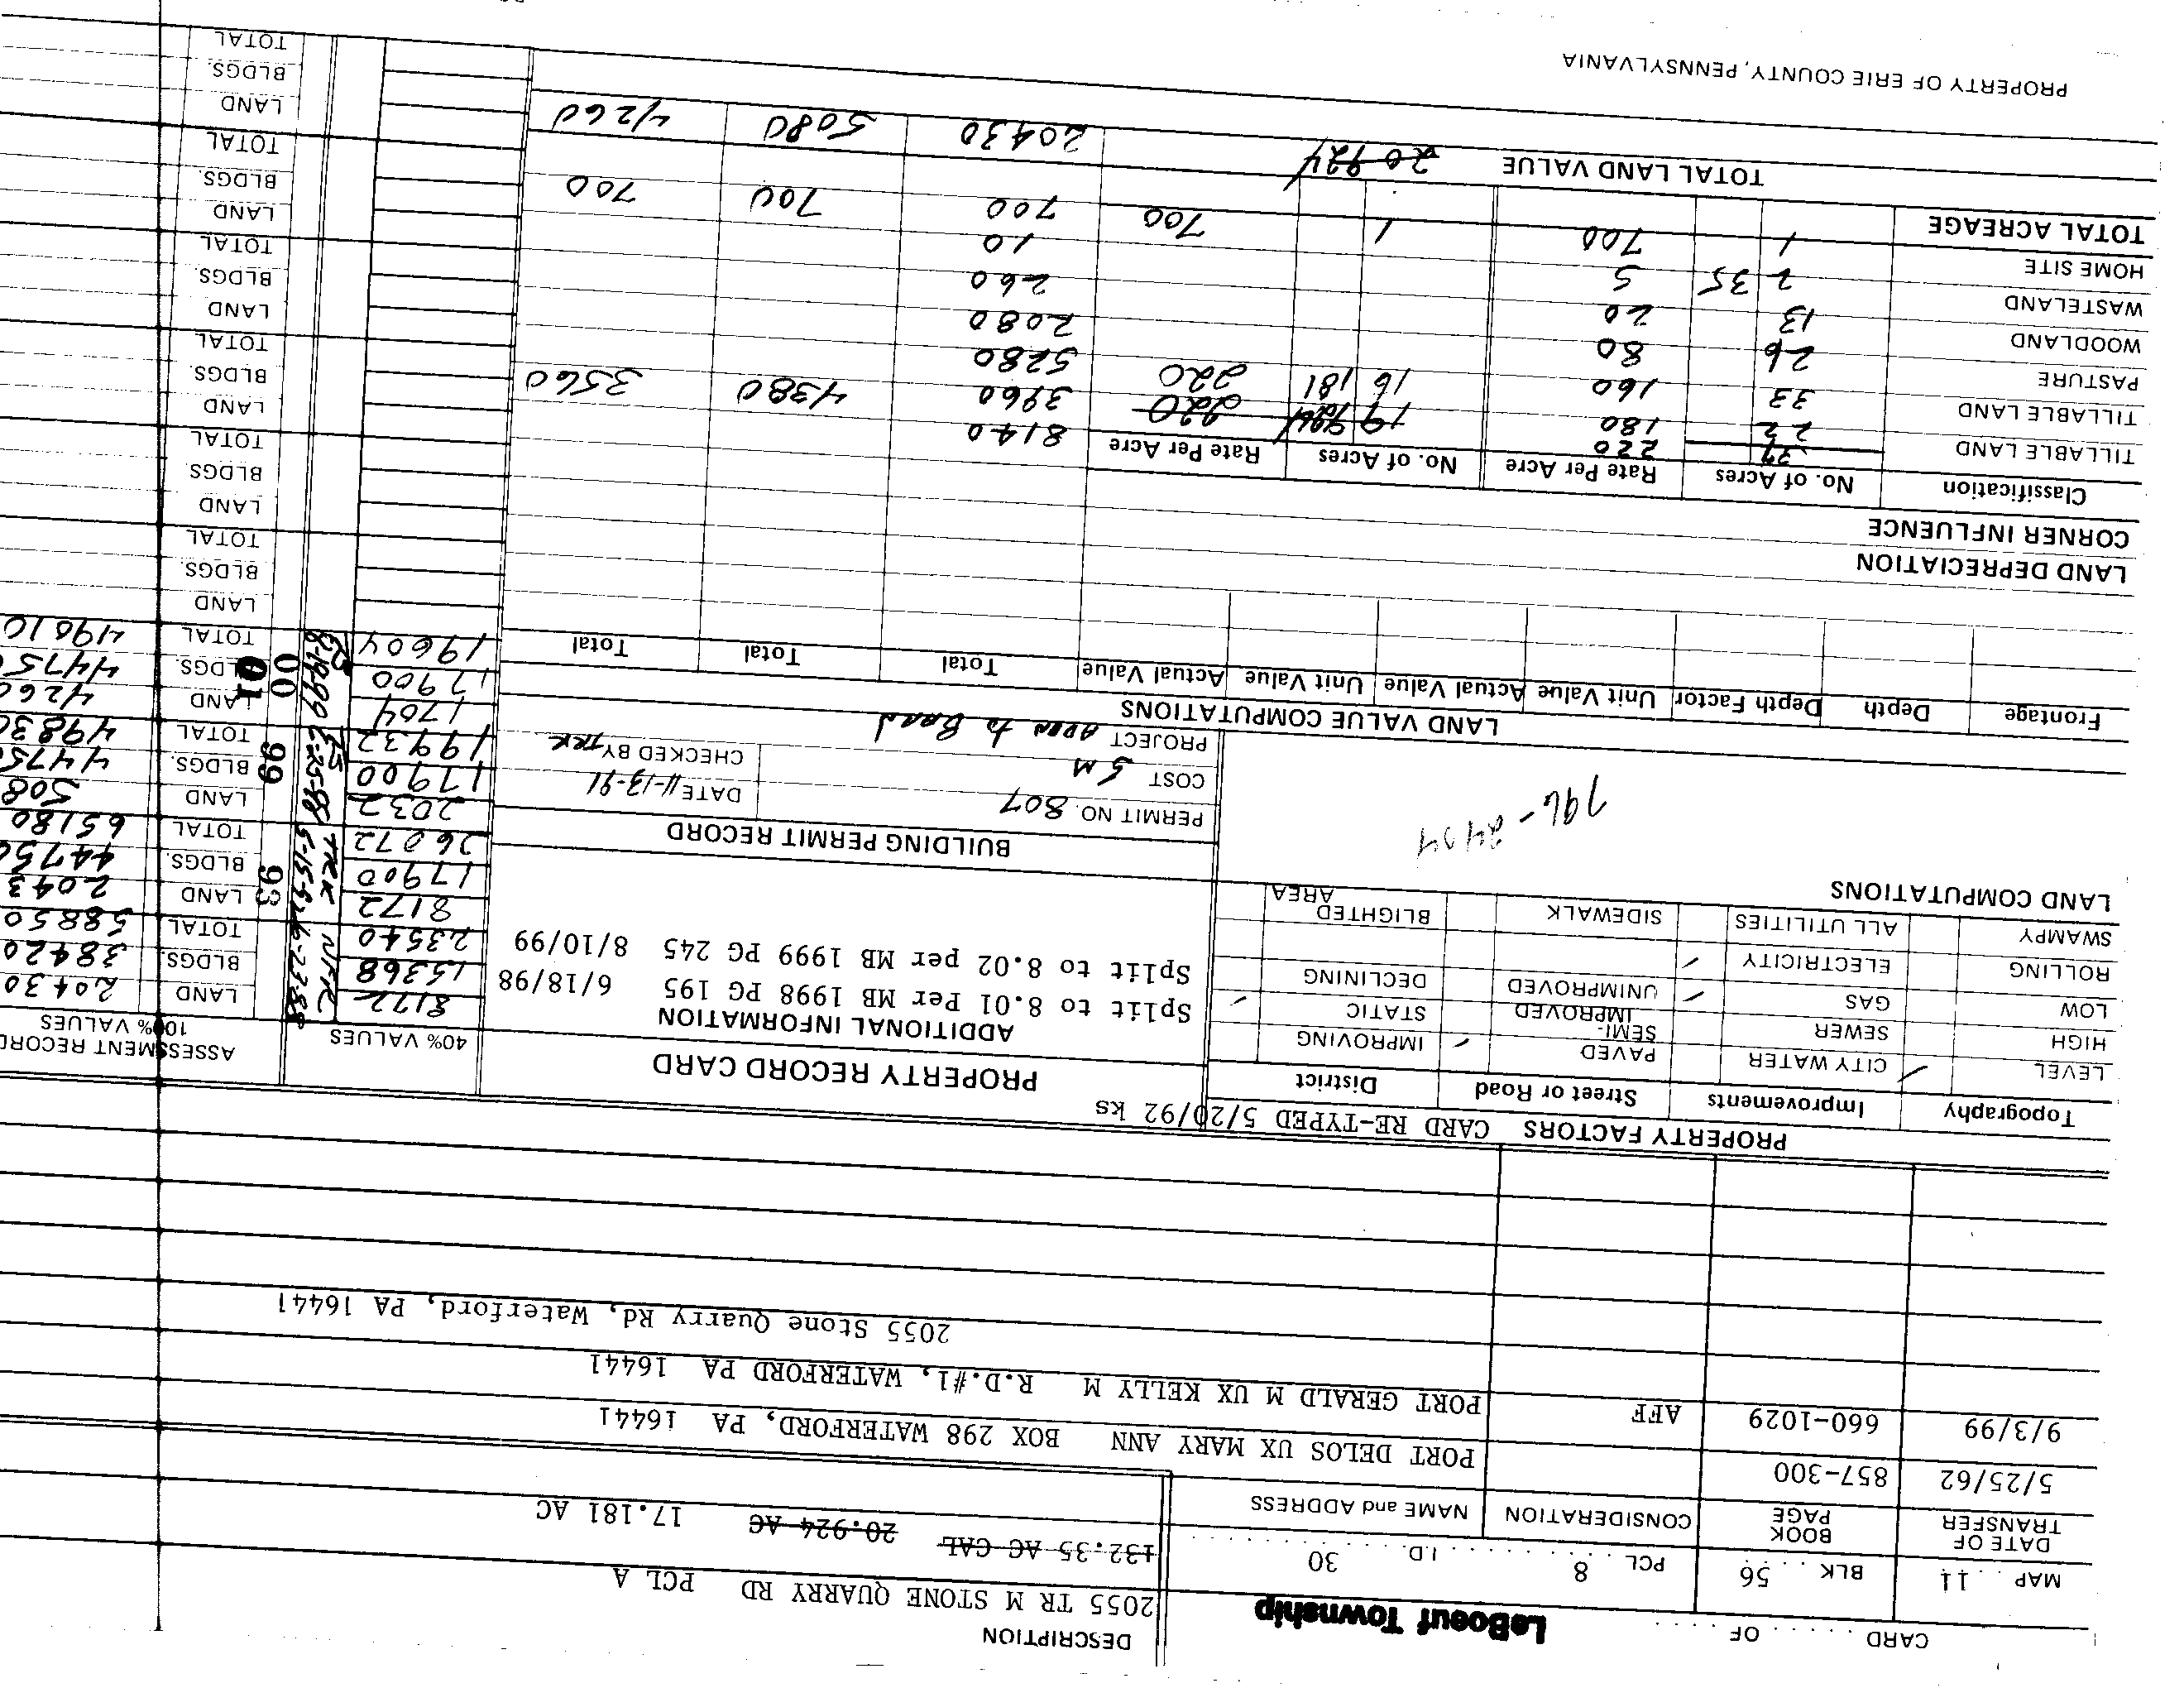 CARD . . . . . OF . . . . .
LeBoeuf Township
DESCRIPTION
2055 TR M STONE QUARRY RD PCL A
MAP 11 BLK 56 PCL 8 I.D. 30
132.35 AC CAL 20.924 AC 17.181 AC
DATE OF TRANSFER BOOK PAGE CONSIDERATION NAME and ADDRESS
5/25/62 857-300 PORT DELOS UX MARY ANN BOX 298 WATERFORD, PA 16441
9/3/99 660-1029 AFF PORT GERALD M UX KELLY M R.D.#1, WATERFORD PA 16441
2055 Stone Quarry Rd, Waterford, PA 16441
PROPERTY FACTORS CARD RE-TYPED 5/20/92 ks
Topography Improvements Street or Road District
LEVEL ✓ CITY WATER PAVED ✓ IMPROVING
HIGH SEWER SEMI-IMPROVED STATIC ✓
LOW GAS ✓ UNIMPROVED DECLINING
ROLLING ELECTRICITY ✓
SWAMPY ALL UTILITIES SIDEWALK BLIGHTED AREA
PROPERTY RECORD CARD
ADDITIONAL INFORMATION
Split to 8.01 Per MB 1998 PG 195 6/18/98
Split to 8.02 per MB 1999 PG 245 8/10/99
BUILDING PERMIT RECORD
PERMIT NO. 807 DATE 11-13-91
COST 5 M CHECKED BY TRK
PROJECT
LAND COMPUTATIONS
796-2404
LAND VALUE COMPUTATIONS
Frontage Depth Depth Factor Unit Value Actual Value Unit Value Actual Value Total Total Total
LAND DEPRECIATION
CORNER INFLUENCE
Classification No. of Acres Rate Per Acre No. of Acres Rate Per Acre
TILLABLE LAND 37 220 19 924 220 8140
TILLABLE LAND 22 180 16 181 220 3960 4380 3560
PASTURE 33 160 5280
WOODLAND 26 80 2080
WASTELAND 13 20 260
HOME SITE 2 35 5 10
TOTAL ACREAGE 1 700 1 700 700 700 700
TOTAL LAND VALUE 20 924 20430 5080 4260
PROPERTY OF ERIE COUNTY, PENNSYLVANIA
40% VALUES ASSESSMENT RECORD
100% VALUES
8172 NFK LAND 20430
15368 6-23-88 BLDGS. 38420
23540 TOTAL 58850
8172 TRK 93 LAND 2043
17900 BLDGS. 44750
26072 TOTAL 65180
2032 99 LAND 508
17900 2-25-98 BLDGS. 4475
19932 TOTAL 4983
1704 00 LAND 426
17900 01 BLDGS. 4475
19604 TOTAL 49010
LAND
BLDGS.
TOTAL
LAND
BLDGS.
TOTAL
LAND
BLDGS.
TOTAL
LAND
BLDGS.
TOTAL
LAND
BLDGS.
TOTAL
LAND
BLDGS.
TOTAL